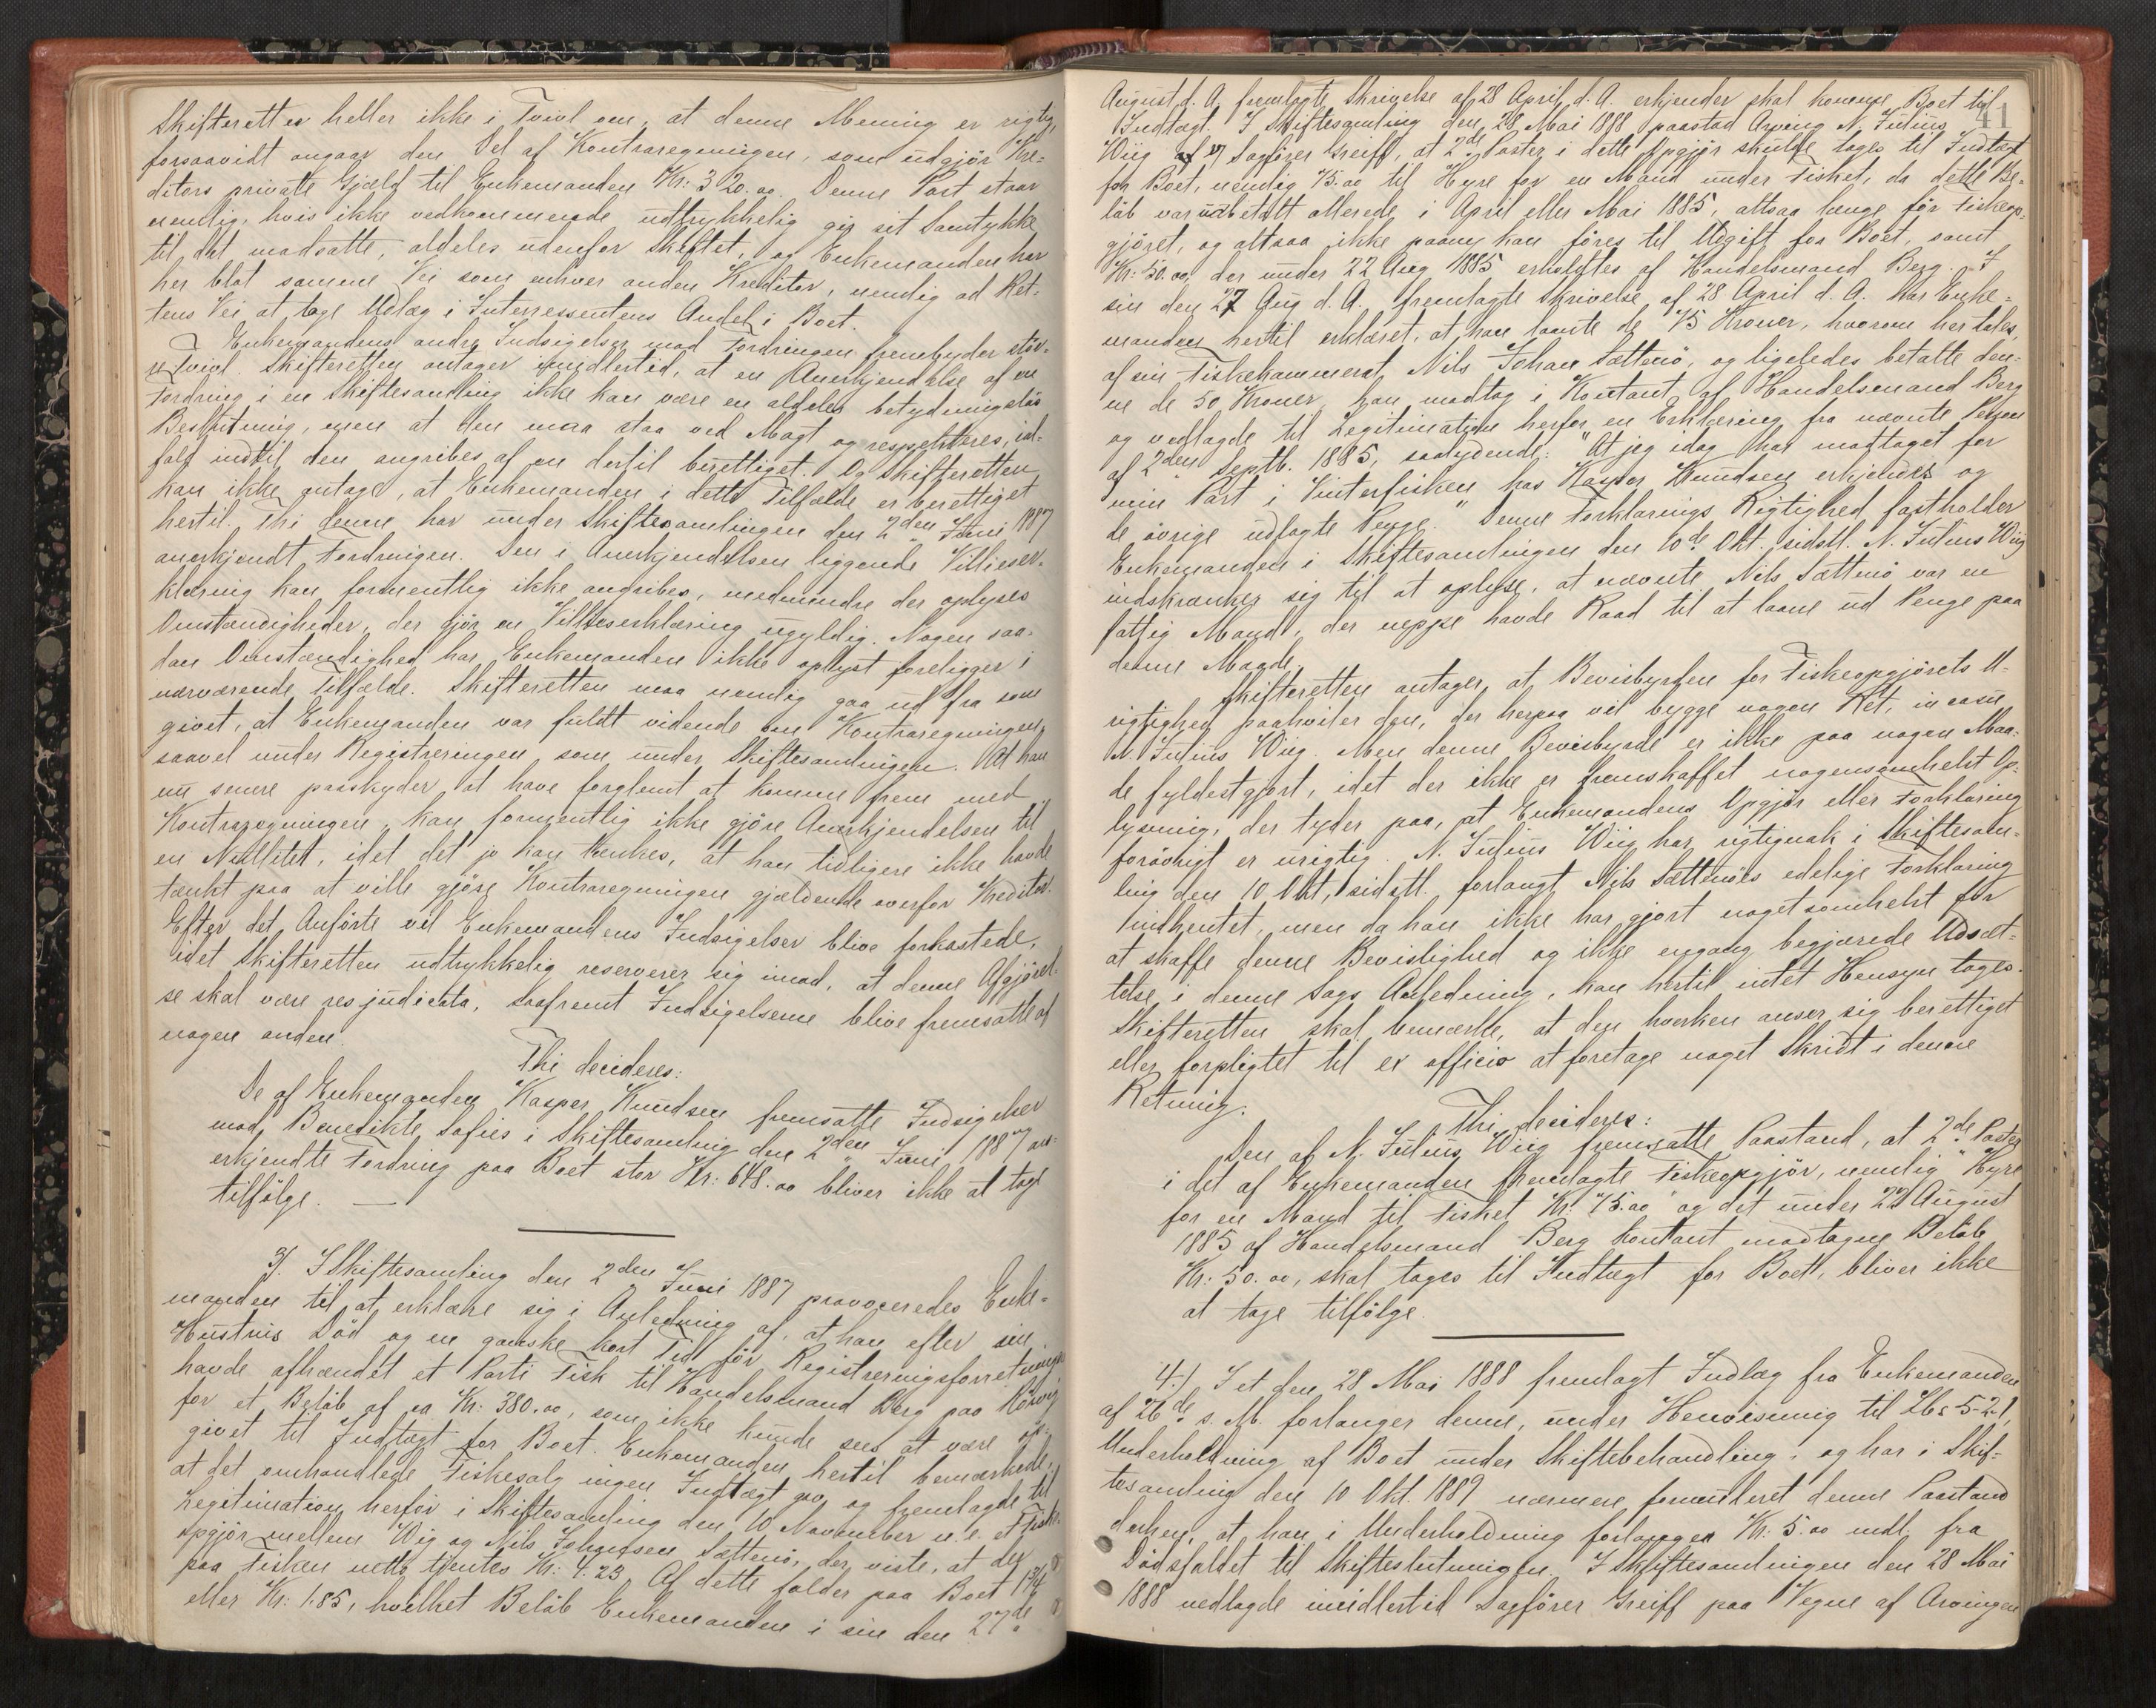 Skifteretten heller ikke i Tvivl om, at denne Mening er rigtig,
forsaavidt angaar den Del af Kontraregningen, som udgjör Kre-
ditors private Gjæld til Enkemanden Kr: 320.00. Denne Part staar
nemlig, hvis ikke vedkommende udtrykkelig gir sit Samtykke
til det modsatte, aldeles udenfor Skiftet, og Enkemanden har
her blot samme Vei som enhver anden Kreditor, nemlig ad Ret-
tens Vei at tage Udlæg i Interressentens Andel i Boet.
Enkemandens andre Indsigelser mod Fordringen frembyder stör-
re Tvivl. Skifteretten antager imidlertid, at en Anerkjendelse af en
Fordring i en Skiftesamling ikke kan være en aldeles betydningslös
Beslutning, men at den maa staa ved Magt og respekteres, ial-
fald indtil den angribes af en dertil berettiget. Og Skifteretten
kan ikke antage, at Enkemanden i dette Tilfælde er berettiget
hertil. Thi denne har under Skiftesamlingen den 2den Juni 1887
anerkjendt Fordringen. Den i Anerkjendelsen liggende Villieser-
klæring kan formentlig ikke angribes, medmindre der oplyses
Omstændigheder, der gjör en Villieserklæring ugyldig. Nogen saa-
dan Omstændighed har Enkemanden ikke oplyst foreligger i
nærværende Tilfælde. Skifteretten maa nemlig gaa ud fra som
givet, at Enkemanden var fuldt vidende om Kontraregningen,
saavel under Registreringen som under Skiftesamlingen. At han
nu senere paaskyder at have forglemt at komme frem med
Kontraregningen, kan formentlig ikke gjöre Anerkjendelsen til
en Nullitet, idet det jo kan tænkes, at han tidligere ikke havde
tænkt paa at ville gjöre Kontraregningen gjældende overfor Kreditor.
Efter det Anförte vil Enkemandens Indsigelser blive forkastede,
idet Skifteretten udtrykkelig reserverer sig imod, at denne Afgjörel-
se skal være res judicata, saafremt Indsigelserne blive fremsatte af
nogen anden.
Thi decideres:
De af Enkemanden Kasper Knudsen fremsatte Indsigelser
mod Benedikte Sofies i Skiftesamling den 2den Juni 1887 an-
erkjendte Fordring paa Boet stor Kr: 648.00 bliver ikke at tage
tilfölge. —
3/. I Skiftesamling den 2den Juni 1887 provoceredes Enke-
manden til at erklære sig i Anledning af, at han efter sin
Hustrus Död og en ganske kort Tid för Registreringsforretningen
havde afhændet et Parti Fisk til Handelsmand Berg paa Rösvig
for et Belöb af ca Kr: 380.00, som ikke kunde sees at være op-
givet til Indtægt for Boet. Enkemanden hertil bemærkede,
at det omhandlede Fiskesalg ingen Indtægt gav, og fremlagde til
Legitimation herfor i Skiftesamling den 10 November n. e. et Fiske-
opgjör mellem Wiig og Nils Johansen Sættenö, der viste, at der
paa Fisken netto tjentes Kr: 4.23. Af dette falder paa Boet 1 3/4
eller Kr: 1.85, hvilket Belöb Enkemanden i sin den 27de
41
August d. A. fremlagte Skrivelse af 28 April d. A. erkjender skal komme Boet til
Indtægt. I Skiftesamling den 28 Mai 1888 paastod Arving N. Julius
Wiig v/ Sagförer Greiff, at 2de Poster i dette Opgjör skulde tages til Indtægt
for Boet, nemlig 75.00 til Hyre for en Mand under Fisket, da dette Be-
löb var udbetalt allerede i April eller Mai 1885, altsaa længe för Fiskeop-
gjöret, og altsaa ikke paany kan föres til Udgift for Boet, samt
Kr: 50.00, der under 22 Aug 1885 erholdtes af Handelsmand Berg. I
sin den 27 Aug d. A. fremlagte Skrivelse af 28 April d. A. har Enke-
manden hertil erklæret, at han laante de 75 Kroner, hvorom her tales,
af sin Fiskekammerat Nils Johan Sættenö, og ligeledes betalte den-
ne de 50 Kroner, han modtog i Kontant af Handelsmand Berg
og vedlagde til Legitimation herfor en Erklæring fra nævnte Person
af 2den Septb. 1885, saalydende: "At jeg idag har modtaget for
min Part i Vinterfisken hos Kasper Knudsen erkjendes og
de övrige udlagte Penge." Denne Forklarings Rigtighed fastholder
Enkemanden i Skiftesamlingen den 10de Okt. sidstl. N. Julius Wiig
indskrænker sig til at oplyse, at nævnte Nils Sættenö var en
fattig Mand, der neppe havde Raad til at laane ud Penge paa
denne Maade.
Skifteretten antager, at Bevisbyrden for Fiskeopgjörets U-
rigtighed paahviler den, der herpaa vil bygge nogen Ret, in casu
N. Julius Wiig. Men denne Bevisbyrde er ikke paa nogen Maa-
de fyldestgjort, idet der ikke er fremskaffet nogensomhelst Op-
lysning, der tyder paa, at Enkemandens Opgjör eller Forklaring
forövrigt er urigtig. N. Julius Wiig har rigtignok i Skiftesam-
ling den 10 Okt. sidstl. forlangt Nils Sættenöes edelige Forklaring
indhentet, men da han ikke har gjort nogetsomhelst for
at skaffe denne Bevislighed og ikke engang begjærede Udsæt-
telse i denne Sags Anledning, kan hertil intet Hensyn tages.
Skifteretten skal bemærke, at den hverken anser sig berettiget
eller forpligtet til ex officio at foretage noget Skridt i denne
Retning.
Thi decideres:
Den af N. Julius Wiig fremsatte Paastand, at 2de Poster
i det af Enkemanden fremlagte Fiskeopgjör, nemlig "Hyre
for en Mand til Fisket Kr: 75.00" og det under 22 August
1885 af Handelsmand Berg kontant modtagne Belöb
Kr: 50.00, skal tages til Indtægt for Boet, bliver ikke
at tage tilfölge.
4./ I et den 28 Mai 1888 fremlagt Indlæg fra Enkemanden
af 26de s. M. forlanger denne, under Henvisning til Lbs 5-2-1,
Underholdning af Boet under Skiftebehandling, og har i Skif-
tesamling den 10 Okt. 1889 nærmere formuleret denne Paastand
derhen, at han i Underholdning forlanger Kr: 5.00 mdl. fra
Dödsfaldet til Skifteslutningen. I Skiftesamlingen den 28 Mai
1888 nedlagde imidlertid Sagförer Greiff paa Vegne af Arvingen